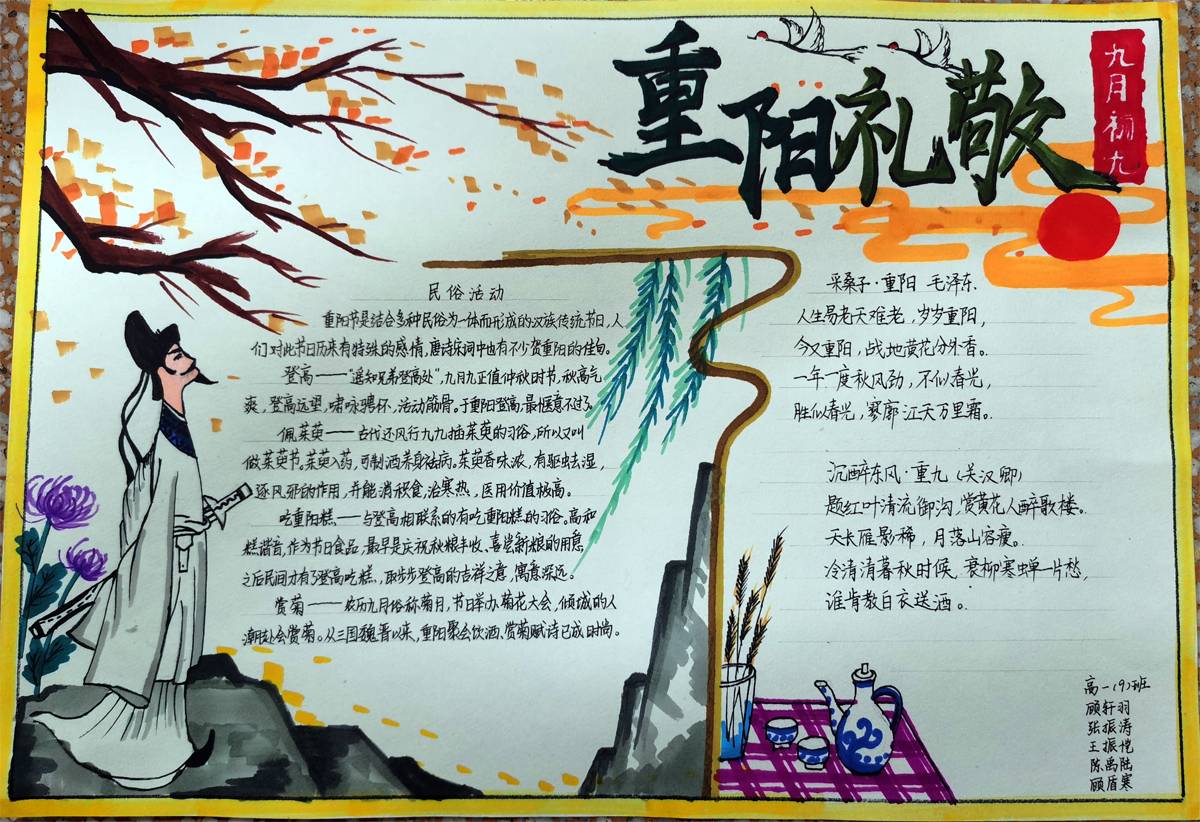 重阳礼敬
九月初九
民俗活动
重阳节是结合多种民俗为一体而形成的汉族传统节日,人
们对此节日历来有特殊的感情,唐诗宋词中也有不少贺重阳的佳句。
登高——“遥知兄弟登高处”,九月九正值仲秋时节,秋高气
爽,登高远望,啸咏骋怀,活动筋骨。于重阳登高,最惬意不过了。
佩茱萸——古代还风行九九插茱萸的习俗,所以又叫
做茱萸节。茱萸入药,可制酒养身祛病。茱萸香味浓,有驱虫去湿,
逐风邪的作用,并能消积食,治寒热,医用价值极高。
吃重阳糕——与登高相联系的有吃重阳糕的习俗。高和
糕谐音,作为节日食品,最早是庆祝秋粮丰收、喜尝新粮的用意,
之后民间才有了登高吃糕,取步步登高的吉祥之意,寓意深远。
赏菊——农历九月俗称菊月,节日举办菊花大会,倾城的人
潮赴会赏菊。从三国魏晋以来,重阳聚会饮酒、赏菊赋诗已成时尚。
采桑子·重阳 毛泽东.
人生易老天难老,岁岁重阳,
今又重阳,战地黄花分外香。
一年一度秋风劲,不似春光,
胜似春光,寥廓江天万里霜。
沉醉东风·重九(关汉卿)
题红叶清流御沟,赏黄花人醉歌楼。
天长雁影稀,月落山容瘦。
冷清清暮秋时候,衰柳寒蝉一片愁,
谁肯教白衣送酒。
高一(9)班
顾轩羽
张振涛
王振恺
陈禹陆
顾盾寒